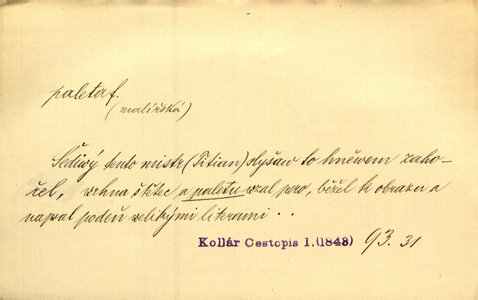 paleta f.
(malířská)
Šedivý tento mistr (Titian) slyšaw to hněwem zaho-
řel, wrhna štětce a paletu wzal pero, běžel k obrazu a
napsal podeň velikými literami . .
Kollár Cestopis I. (1843) 93. 31